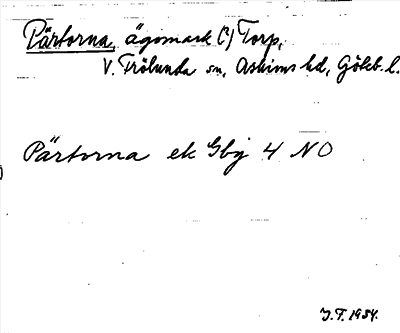 Pärtorna, ägomark (?) Torp,
V. Frölunda sn, Askims hd, Göteb. l.
Pärtorna ek Gbg 4 NO
J.F. 1954.